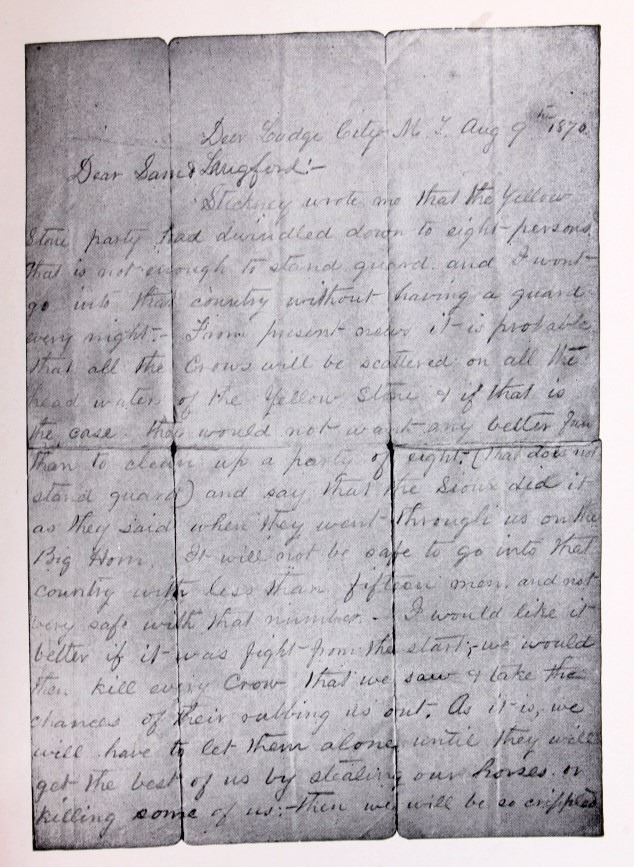 Deer Lodge City M. T. Aug 9th 1870.
Dear Sam & Langford:-
Stickney wrote me that the Yellow
Stone party had dwindled down to eight-persons
that is not enough to stand guard. and I wont
go into that country without having a guard
every night.- From present news it is probable
that all the Crows will be scattered on all the
head waters of the Yellow Stone & if that is
the case. they would not want any better fun
than to clean up a party of eight. (that does not
stand guard) and say that the Sioux did it
as they said when they went through us on the
Big Horn. It will not be safe to go into that
country with less than fifteen men. and not
very safe with that number.- I would like it
better if it was fight from the start;- we would
then kill every Crow that we saw & take the
chances of their rubbing us out. As it is, we
will have to let them alone until they will
get the best of us by stealing our horses or
killing some of us:- then we will be so crippled